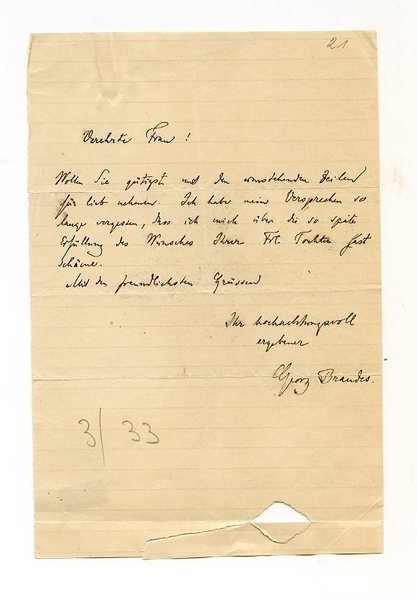 21
Verehrte Frau!
Wollen Sie gütigst mit den umstehenden Zeilen
für lieb nehmen. Ich habe mein Versprechen so
lange vergessen, dass ich mich über die so späte
Erfüllung des Wunsches Ihrer Frl. Tochter fast
schäme.
Mit den freundlichsten Grüssen
Ihr hochachtungsvoll
ergebener
Georg Brandes.
3/33